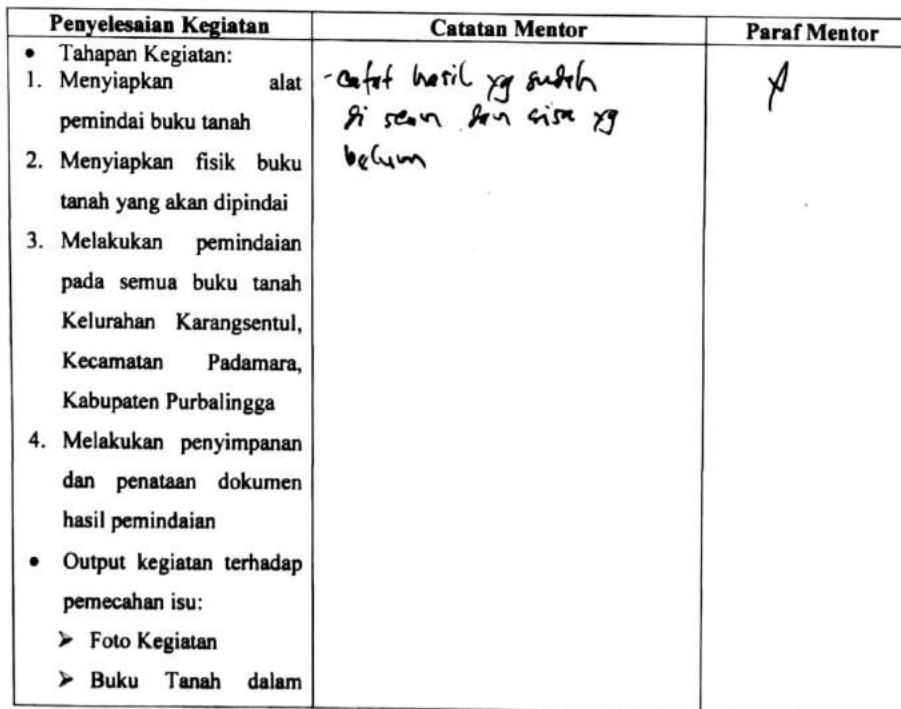 Penyelesaian Kegiatan
Catatan Mentor
Paraf Mentor
• Tahapan Kegiatan:
1. Menyiapkan alat
pemindai buku tanah
2. Menyiapkan fisik buku
tanah yang akan dipindai
3. Melakukan pemindaian
pada semua buku tanah
Kelurahan Karangsentul,
Kecamatan Padamara,
Kabupaten Purbalingga
4. Melakukan penyimpanan
dan penataan dokumen
hasil pemindaian
• Output kegiatan terhadap
pemecahan isu:
➢ Foto Kegiatan
➢ Buku Tanah dalam
- catat hasil yg sudah
di scan dan sisa yg
belum